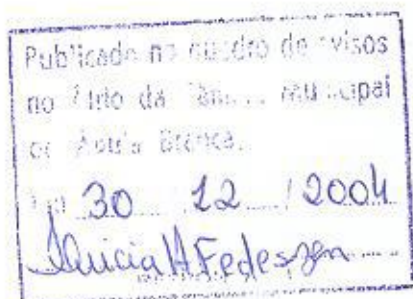 Publicado no quadro de avisos
no Átrio da Câmara Municipal
de Branca.
Em 30 12 / 2004
Fedeszen